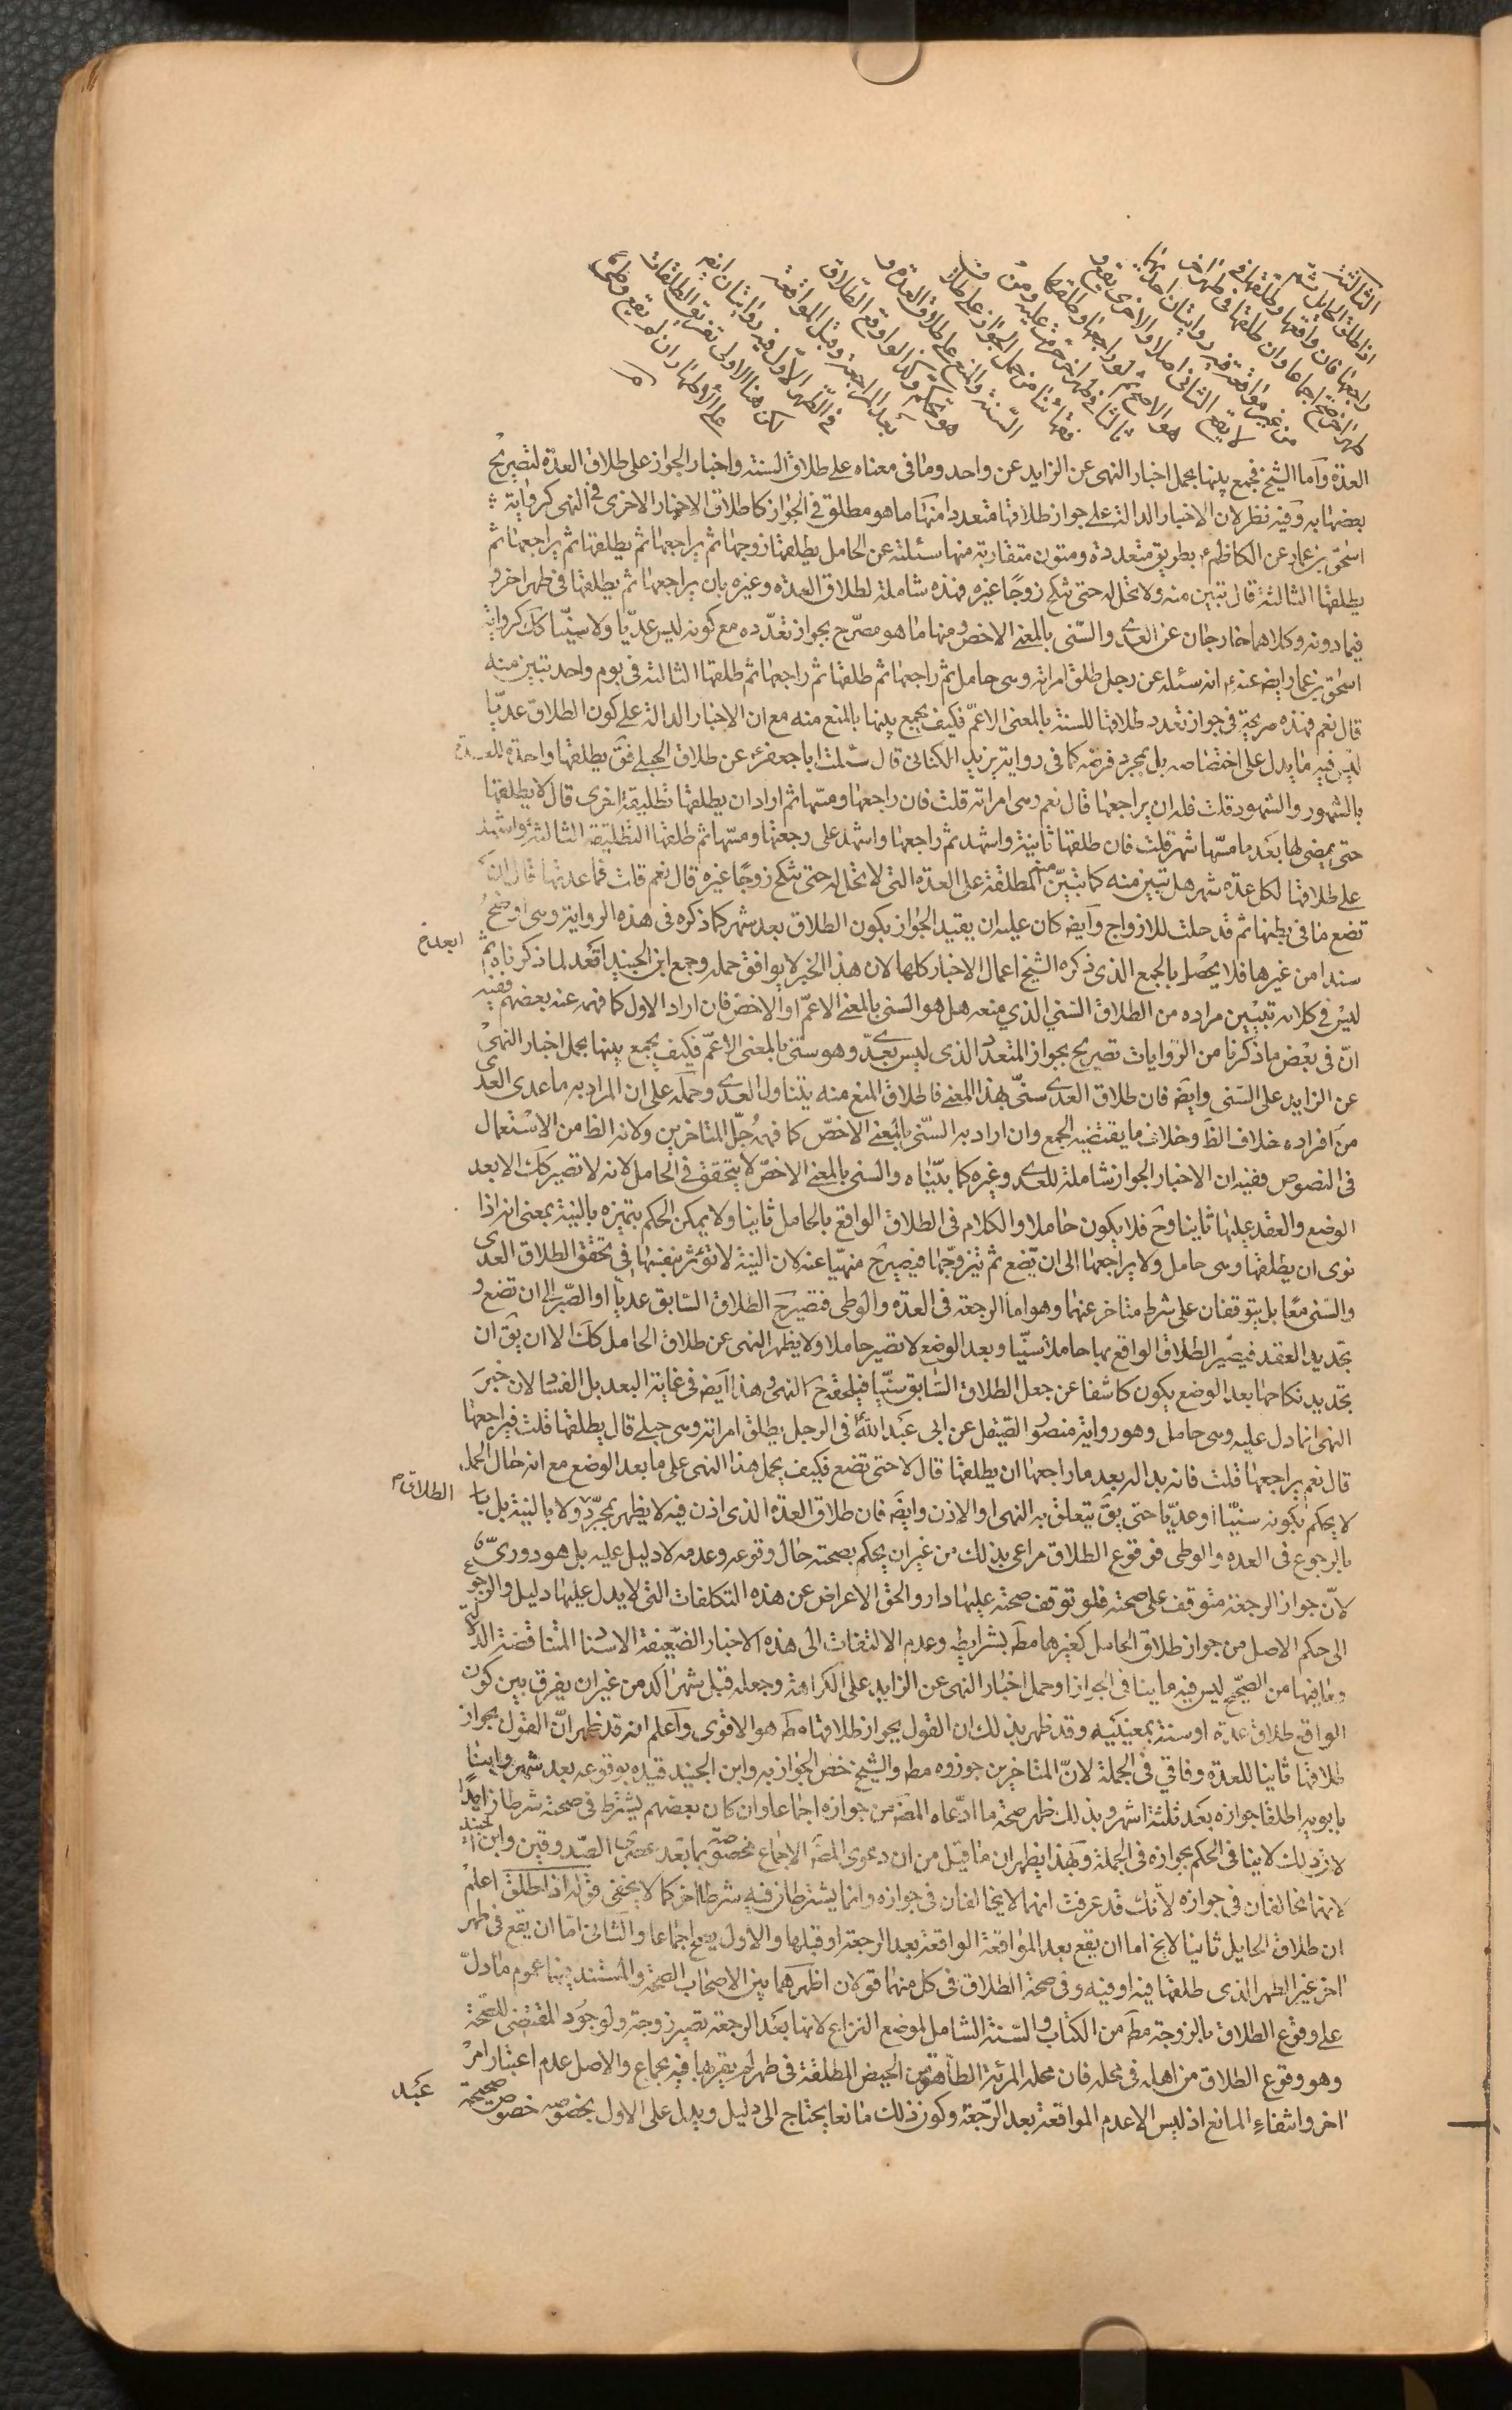 الثالثة
اذا طلق الحايل ثم
راجعها فان واقعها وطلقها في
طهر اخر صح اجماعا وان طلقها في طهر اخر
من غير مواقعة فيه روايتان احديهما
لا يقع الثاني اصلا والاخرى يقع و
هو الاصح ثم لو راجعها وطلقها
ثالثا في طهر اخر حرمت عليه ومن
فقهائنا من حمل الجواز على طلاق
السنة والمنع على طلاق العدة و
هو تحكم وكذا لو اوقع الطلاق
بعد المراجعة وقبل المواقعة
في الطهر الاول فيه روايتان ايضا
لكن هنا الاولى تفريق الطلقات
على الاطهار ان لم يقع وطى
العدة وآما الشيخ فجمع بينها بحمل اخبار النهى عن الزايد عن واحد وما فى معناه على طلاق السنة واخبار الجواز على طلاق العدة لتصريح
بعضها به وفيه نظر لان الاخبار الدالة على جواز طلاقها متعددا منها ما هو مطلق فى الجواز كاطلاق الاخبار الاخرى فى النهى كرواية
اسحق بن عمار عن الكاظم ع بطريق متعددة ومتون متقاربة منها سئلته عن الحامل يطلقها زوجها ثم يراجعها ثم يطلقها ثم يراجعها ثم
يطلقها الثالثة قال تبين منه ولا تحل له حتى تنكح زوجًا غيره فهذه شاملة لطلاق العدة وغيره بان يراجعها ثم يطلقها فى طهر اخر و
فيما دونه وكلاهما خارجان عن العدى والسنى بالمعنى الاخص ومنها ما هو مصرح بجواز تعدده مع كونه ليس عديّا ولا سنيّا كك كرواية
اسحق بن عمار ايضا عنه ع انه سئله عن رجل طلق امراته وهى حامل ثم راجعها ثم طلقها ثم راجعها ثم طلقها الثالثة فى يوم واحد تبين منه
قال نعم فهذه صريحة فى جواز تعدد طلاقها للسنة بالمعنى الاعمّ فكيف يجمع بينها بالمنع منه مع ان الاخبار الدالة على كون الطلاق عديّا
ليس فيه ما يدل على اختصاصه بل بمجرد فرضه كما فى رواية يزيد الكناسى قال سئلت ابا جعفر ع عن طلاق الحبلى فق يطلقها واحدة للعدة
بالشهور والشهود قلت فله ان يراجعها قال نعم وهى امراته قلت فان راجعها ومسّها ثم اراد ان يطلقها تطليقة اخرى قال لا يطلقها
حتى يمضى لها بعد ما مسّها شهر قلت فان طلقها ثانية واشهد ثم راجعها واشهد على رجعتها ومسّها ثم طلقها التطليقة الثالثة واشهد
على طلاقها لكل عدة شهر هل تبين منه كما تبين المطلقة على العدة التى لا تحل له حتى تنكح زوجًا غيره قال نعم قلت فما عدتها قال ان
تضع ما فى بطنها ثم قد حلت للازواج وآيضه كان عليه ان يقيد الجواز بكون الطلاق بعد شهر كما ذكره فى هذه الرواية وهى اوضح
سندا من غيرها فلا يحصل بالجمع الذى ذكره الشيخ اعمال الاخبار كلها لان هذا الخبر لا يوافق حمله وجمع ابن الجنيد اقعد لما ذكرناه ثم
ابعد خ
ليس فى كلامه تبيين مراده من الطلاق السنى الذي منعه هل هو السنى بالمعنى الاعمّ او الاخصّ فان اراد الاول كما فهمه عنه بعضهم ففيه
انّ فى بعض ما ذكرنا من الروايات تصريح بجواز المتعدد الذى ليس بعدّى وهو سنّى بالمعنى الاعمّ فكيف يجمع بينها بحمل اخبار النهى
عن الزايد على السنى وايضه فان طلاق العدى سنىّ بهذا المعنى فاطلاق المنع منه يتناول العدى وحمله على ان المراد به ما عدى العدى
من افراده خلاف الظَ وخلاف ما يقتضيه الجمع وان اراد به السنّى بالمعنى الاخصّ كما فهمه جُلّ المتاخرين ولانه الظا من الاستعمال
فى النصوص ففيه ان الاخبار الجواز شاملة للعدى وغيره كما بيّناه والسنى بالمعنى الاخصّ لا يتحقق فى الحامل لانه لا تصير كك الا بعد
الوضع والعقد عليها ثانيا وح فلا يكون حاملا والكلام فى الطلاق الواقع بالحامل ثانيا ولا يمكن الحكم بتميزه بالنية بمعنى انه اذا
نوى ان يطلقها وهى حامل ولا يراجعها الى ان تضع ثم تزوجها فيصير ح منهيّا عنه لان النية لا تؤثر بنفسها فى تحقق الطلاق العدى
والسنى معًا بل يتوقفان على شرط متاخر عنهما وهو اما الرجعة فى العدة والوطى فتصير ح الطلاق السابق عديّا او الصّبر الى ان تضع و
تجديد العقد فيصير الطلاق الواقع بها حاملا سنّيا وبعد الوضع لا تصير حاملا ولا يظهر النهى عن طلاق الحامل كك الا ان يق ان
تجديد نكاحها بعد الوضع يكون كاشفا عن جعل الطلاق السّابق سنّيا فيلحقه ح النهى وهذا ايضه فى غاية البعد بل الفساد لان خبر
النهى انما دل عليه وهى حامل وهو رواية منصور الصيقل عن ابى عبد الله ع فى الرجل يطلق امراته وهى حبلى قال يطلقها قلت فيراجعها
قال نعم يراجعها قلت فانه بدا له بعد ما راجعها ان يطلقها قال لا حتى تضع فكيف يحمل هذا النهى على ما بعد الوضع مع انه حال الحمل
لا يحكم بكونه سنيّا او عديّا حتى يقَ يتعلق به النهى او الاذن وايضَه فان طلاق العدة الذى اذن فيه لا يظهر بمجرّد ولا بالنية بل با
الطلاق م
بالرجوع فى العدة والوطى فوقوع الطلاق مراعى بذلك من غير ان يحكم بصحته حال وقوعه وعدمه لا دليل عليه بل هو دورىّ
لانّ جواز الرجعة متوقف على صحته فلو توقف صحته عليها دار والحق الاعراض عن هذه التكلفات التى لا يدل عليها دليل والرجوع
الى حكم الاصل من جواز طلاق الحامل كغيرها مطَ بشرايطه وعدم الالتفات الى هذه الاخبار الضّعيفة الاسناد المتناقضة الدلالة
وما فيها من الصحيح ليس فيه ما ينافى الجواز او حمل اخبار النهى عن الزايد على الكراهة وجعله قبل شهر اكد من غير ان يفرق بين كون
الواقع طلاق عدة او سنة بمعينيه وقد ظهر بذلك ان القول بجواز طلاقها مطَ هو الاقوى وآعلم انه قد ظهر انّ القول بجواز
طلاقها ثانيا للعدة وفاقي فى الجملة لانّ المتاخرين جوزوه مطه والشيخ خص الجواز به وابن الجنيد قيده بوقوعه بعد شهر وابنا
بابويه اطلقا جوازه بعد ثلثة اشهر وبذلك ظهر صحة ما ادّعاه المصَه من جوازه اجماعا وان كان بعضهم يشترط فى صحته شرطا زايدا
لان ذلك لا ينافى الحكم بجوازه فى الجملة وبهذا يظهر ان ما قيل من ان دعوى المصَه الاجماع مخصوصة بما بعد عصرى الصدوقين وابن الجنيد
لانهما يخالفان فى جوازه لانك قد عرفت انهما لا يخالفان فى جوازه وانما يشترطان فيه شرطا اخر كما لا يخفى قوله اذا طلق اعلم
ان طلاق الحايل ثانيا لا يخ اما ان يقع بعد المواقعة الواقعة بعد الرجعة او قبلها والاول يصح اجماعا والثانى امّا ان يقع فى طهر
اخر غير الطهر الذى طلقها فيه او فيه وفى صحة الطلاق فى كل منهما قولان اظهرهما بين الاصحاب الصحة والمستند بينهما عموم ما دلّ
على وقوع الطلاق بالزوجة مطَه من الكتاب والسّنة الشامل لموضع النزاع لانها بعد الرجعة تصير زوجة ولوجود المقتضى للصحّة
وهو وقوع الطلاق من اهله فى محله فان محله المرئة الطاهرة من الحيض المطلقة فى طهر لم يقربها فيه بجماع والاصل عدم اعتبار امر
اخر وانتفاء المانع اذ ليس الا عدم المواقعة بعد الرّجعة وكون ذلك مانعا يحتاج الى دليل ويدل على الاول بخصوصه خصوص صحيحة
عبد